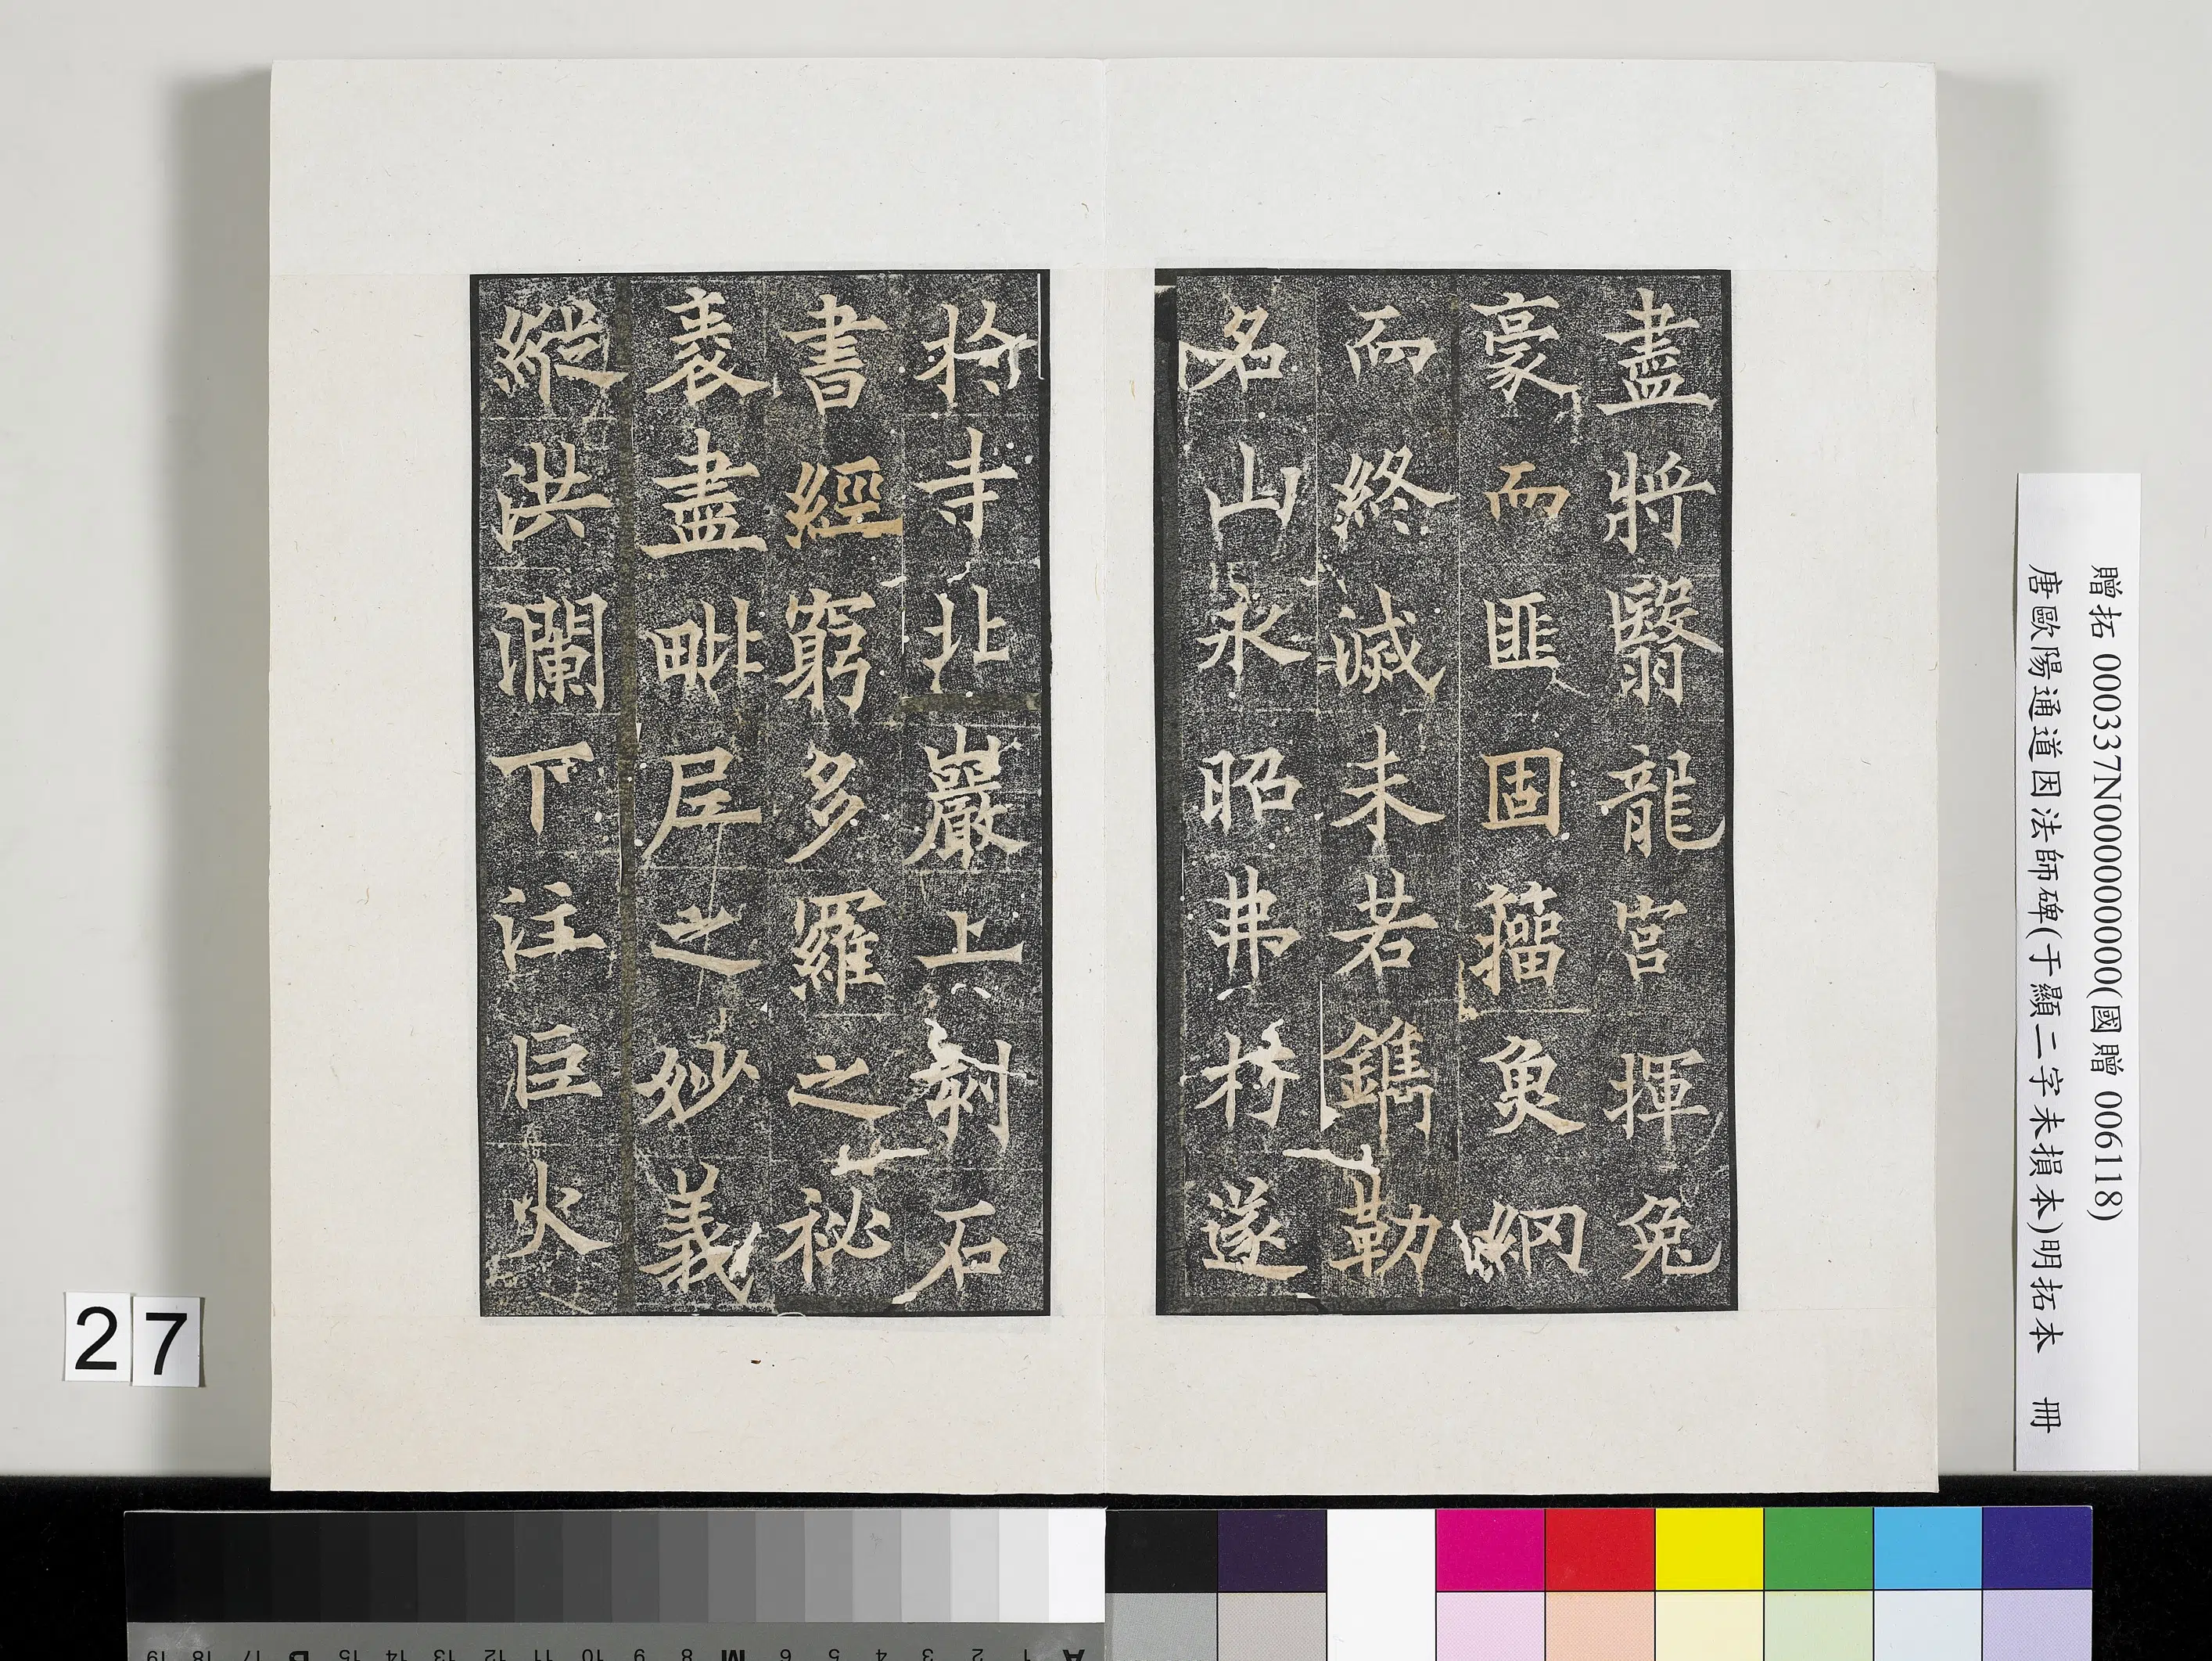 盡將翳龍宮揮兔
豪而匪固籀魚網
而終滅未若鐫勒
名山永昭弗朽遂
於寺北巖上刻石
書經窮多羅之祕
袠盡毗尼之妙義
縱洪瀾下注巨火
贈拓 000337N000000000(國贈 006118)
唐歐陽通道因法師碑(于顯二字未損本)明拓本 冊
27
A 1 2 3 4 5 6 M 8 9 10 11 12 13 14 15 B 17 18 19